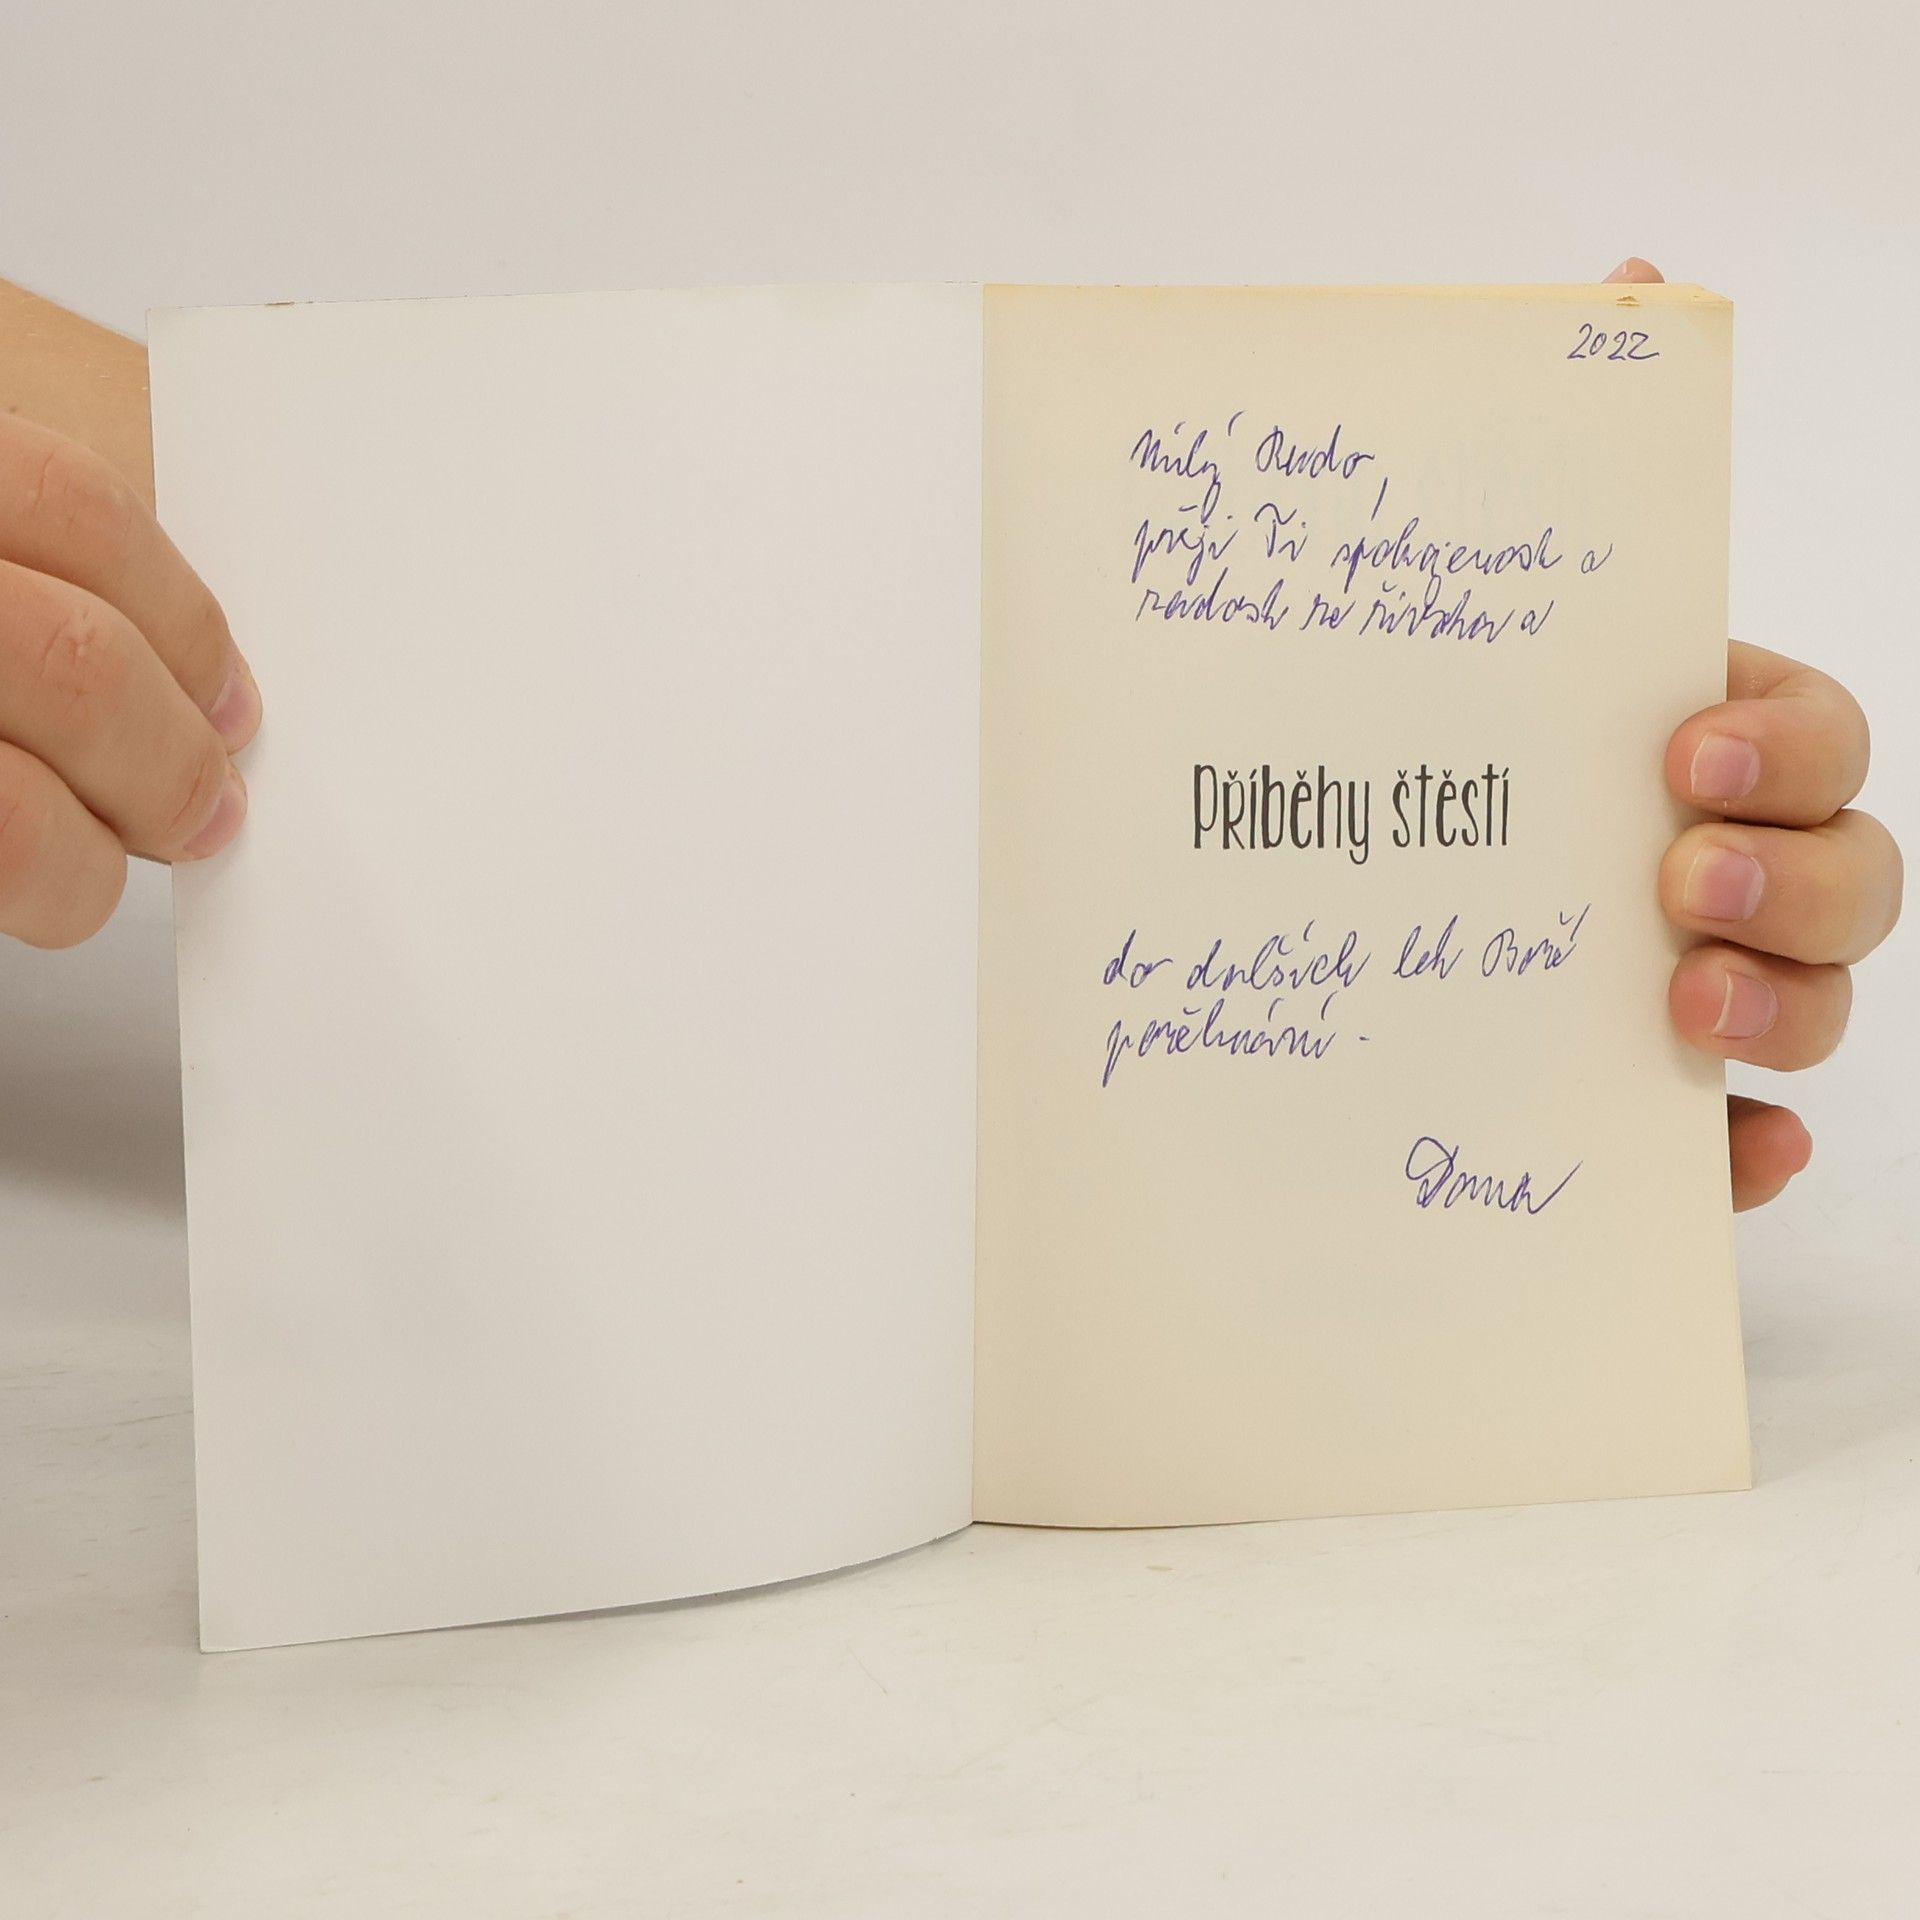 2022
Milý Rudo,
přeji Ti spokojenost a
radost ze života a
Příběhy štěstí
do dalších let Boží
požehnání.
Dana